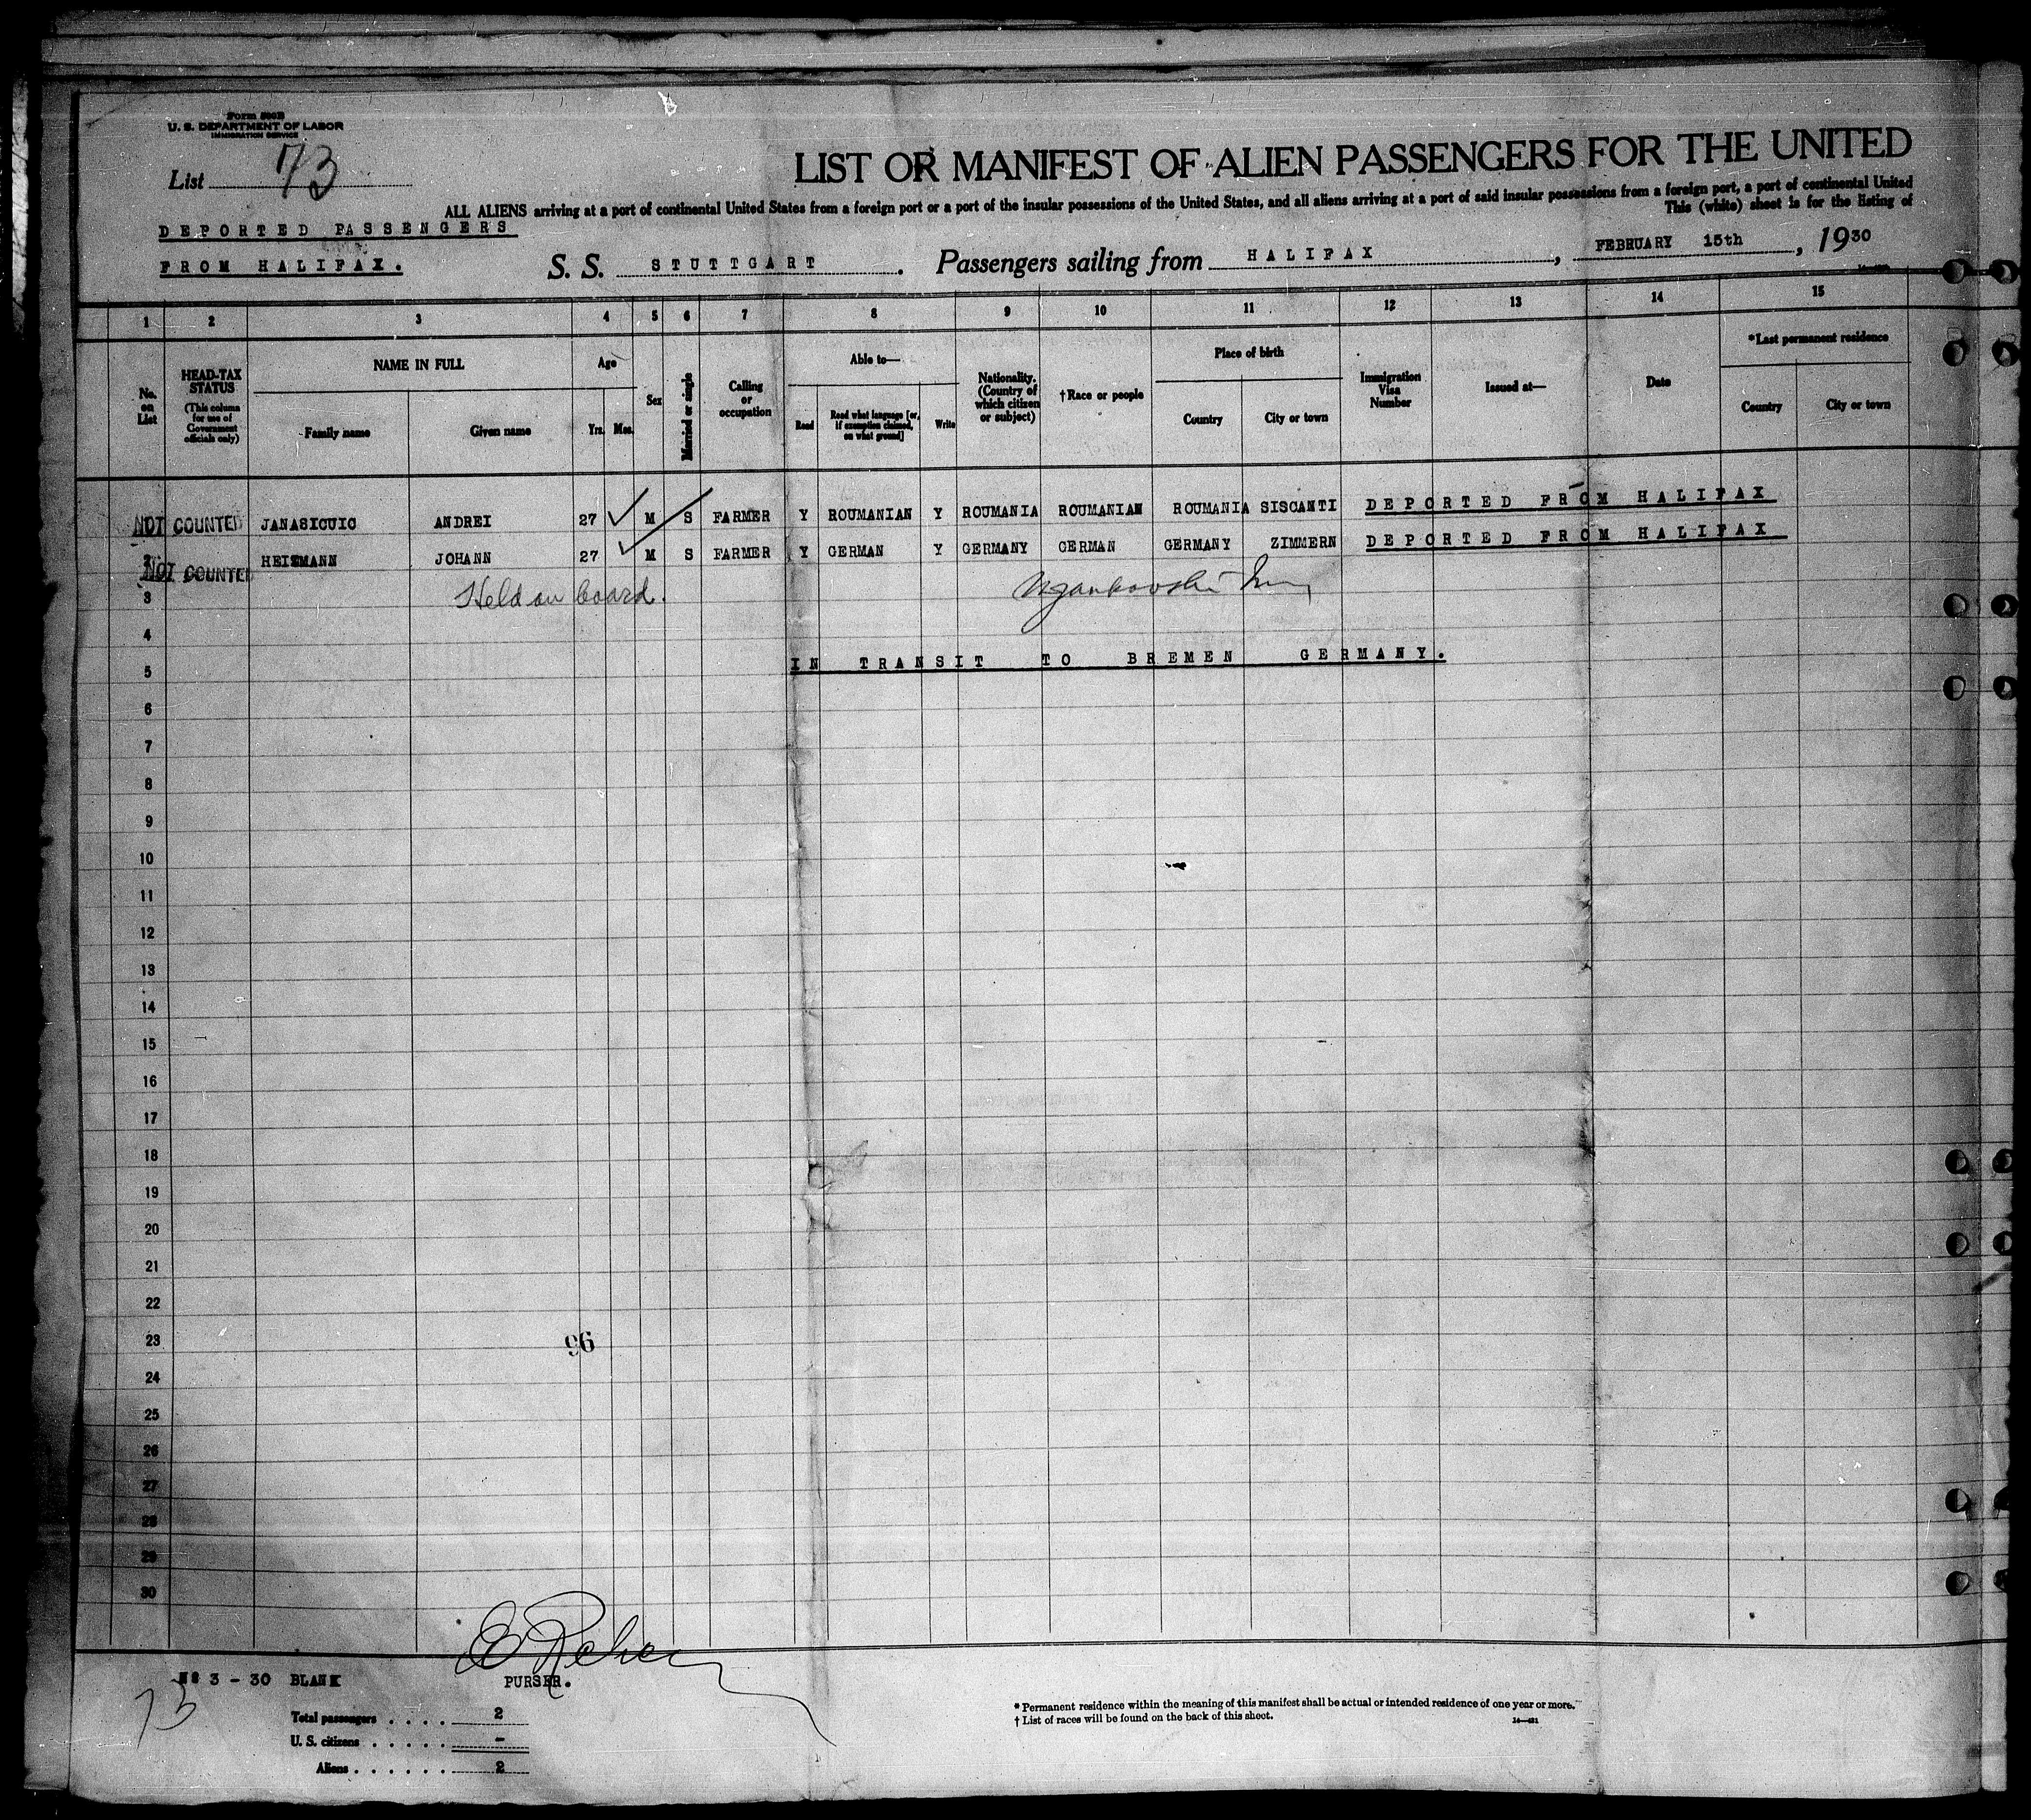 Form 500B
U. S. DEPARTMENT OF LABOR
IMMIGRATION SERVICE
List 73
LIST OR MANIFEST OF ALIEN PASSENGERS FOR THE UNITED
ALL ALIENS arriving at a port of continental United States from a foreign port or a port of the insular possessions of the United States, and all aliens arriving at a port of said insular possessions from a foreign port, a port of continental United
This (white) sheet is for the listing of
DEPORTED PASSENGERS
FROM HALIFAX.
S. S. STUTTGART. Passengers sailing from HALIFAX, FEBRUARY 15th, 1930
1 2 3 4 5 6 7 8 9 10 11 12 13 14 15
No. on List
HEAD-TAX STATUS (This column for use of Government officials only)
NAME IN FULL
Family name Given name
Age
Yrs. Mos.
Sex
Married or single
Calling or occupation
Able to—
Read
Read what language [or, if exemption claimed, on what ground]
Write
Nationality. (Country of which citizen or subject)
†Race or people
Place of birth
Country City or town
Immigration Visa Number
Issued at—
Date
*Last permanent residence
Country City or town
NOT COUNTED JANASICUIC ANDREI 27 M S FARMER Y ROUMANIAN Y ROUMANIA ROUMANIAN ROUMANIA SISCANTI DEPORTED FROM HALIFAX
2 HEISMANN JOHANN 27 M S FARMER Y GERMAN Y GERMANY GERMAN GERMANY ZIMMERN DEPORTED FROM HALIFAX
NOT COUNTED
3 Held on board.
4
5 IN TRANSIT TO BREMEN GERMANY.
6
7
8
9
10
11
12
13
14
15
16
17
18
19
20
21
22
23
96
24
25
26
27
28
29
30
N° 3 - 30 BLANK
PURSER.
73
Total passengers . . . . 2
U. S. citizens . . . . . -
Aliens . . . . . . 2
* Permanent residence within the meaning of this manifest shall be actual or intended residence of one year or more.
† List of races will be found on the back of this sheet.